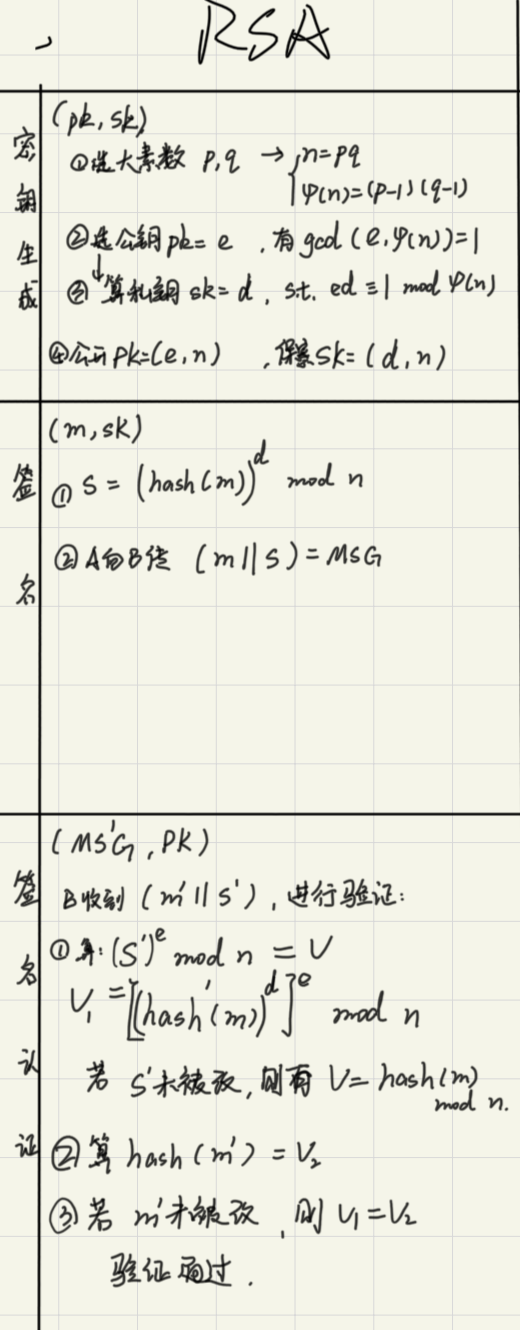 RSA
密钥生成
(pk, sk)
①选大素数 p, q → { n = pq
φ(n) = (p-1)(q-1)
②选公钥 pk = e , 有 gcd(e, φ(n)) = 1
↓
③算私钥 sk = d , s.t. ed ≡ 1 mod φ(n)
④公开 PK=(e, n) , 保密 SK=(d, n)
签名
(m, sk)
① S = (hash(m))^d mod n
② A向B传 (m || s) = MSG
签名认证
(MS'G, PK)
B收到 (m' || s'), 进行验证:
① 算: (S')^e mod n = V
V₁ = [(hash'(m))^d]^e mod n
若 s'未被改, 则有 V = hash(m)
mod n.
② 算 hash(m') = V₂
③ 若 m'未被改, 则 V₁ = V₂
验证通过.